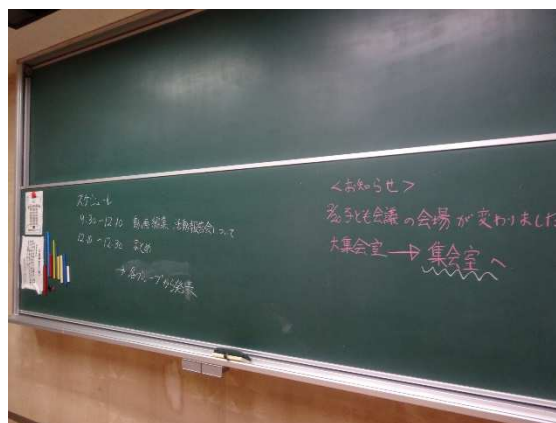 スケジュール
9:30~12:10 動画編集 活動報告会について
12:10~12:30 まとめ
→各グループから発表
<お知らせ>
子ども会議の会場が変わりました
大集会室→集会室へ